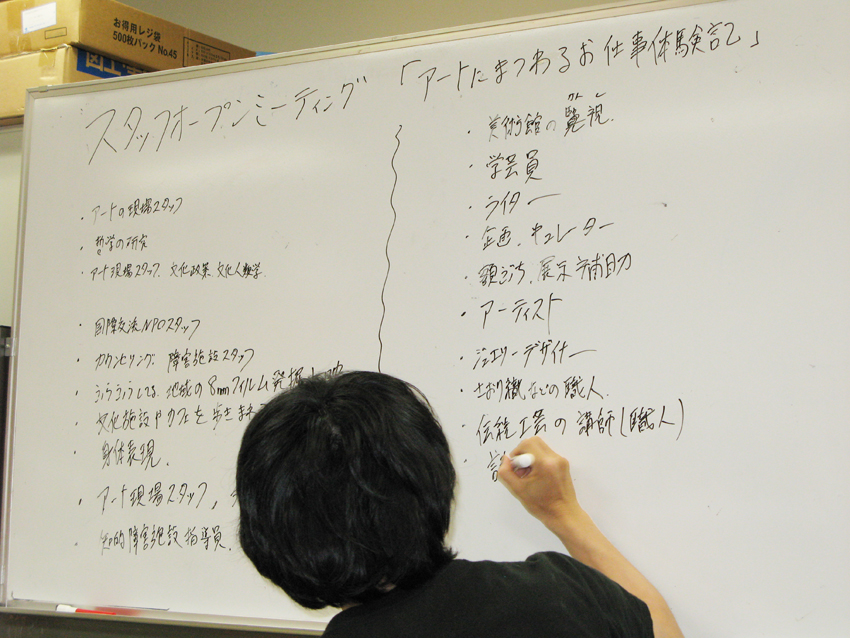 お得用レジ袋
500枚パック No.45
スタッフオープンミーティング
「アートにまつわるお仕事体験記」
・アートの現場スタッフ
・哲学の研究
・アート現場スタッフ、文化政策、文化人類学
・国際交流NPOスタッフ
・カウンセリング、障害施設スタッフ
・ふらふらしてる、地域の8mmフィルム発掘
・文化施設やカフェを歩き
・身体表現、
・アート現場スタッフ、
・知的障害施設指導員、
・美術館の監視、
・学芸員
・ライター
・企画、キュレーター
・額ぶち、展示補助
・アーティスト
・ジュエリーデザイナー
・さおり織などの職人、
・伝統工芸の講師(職人)